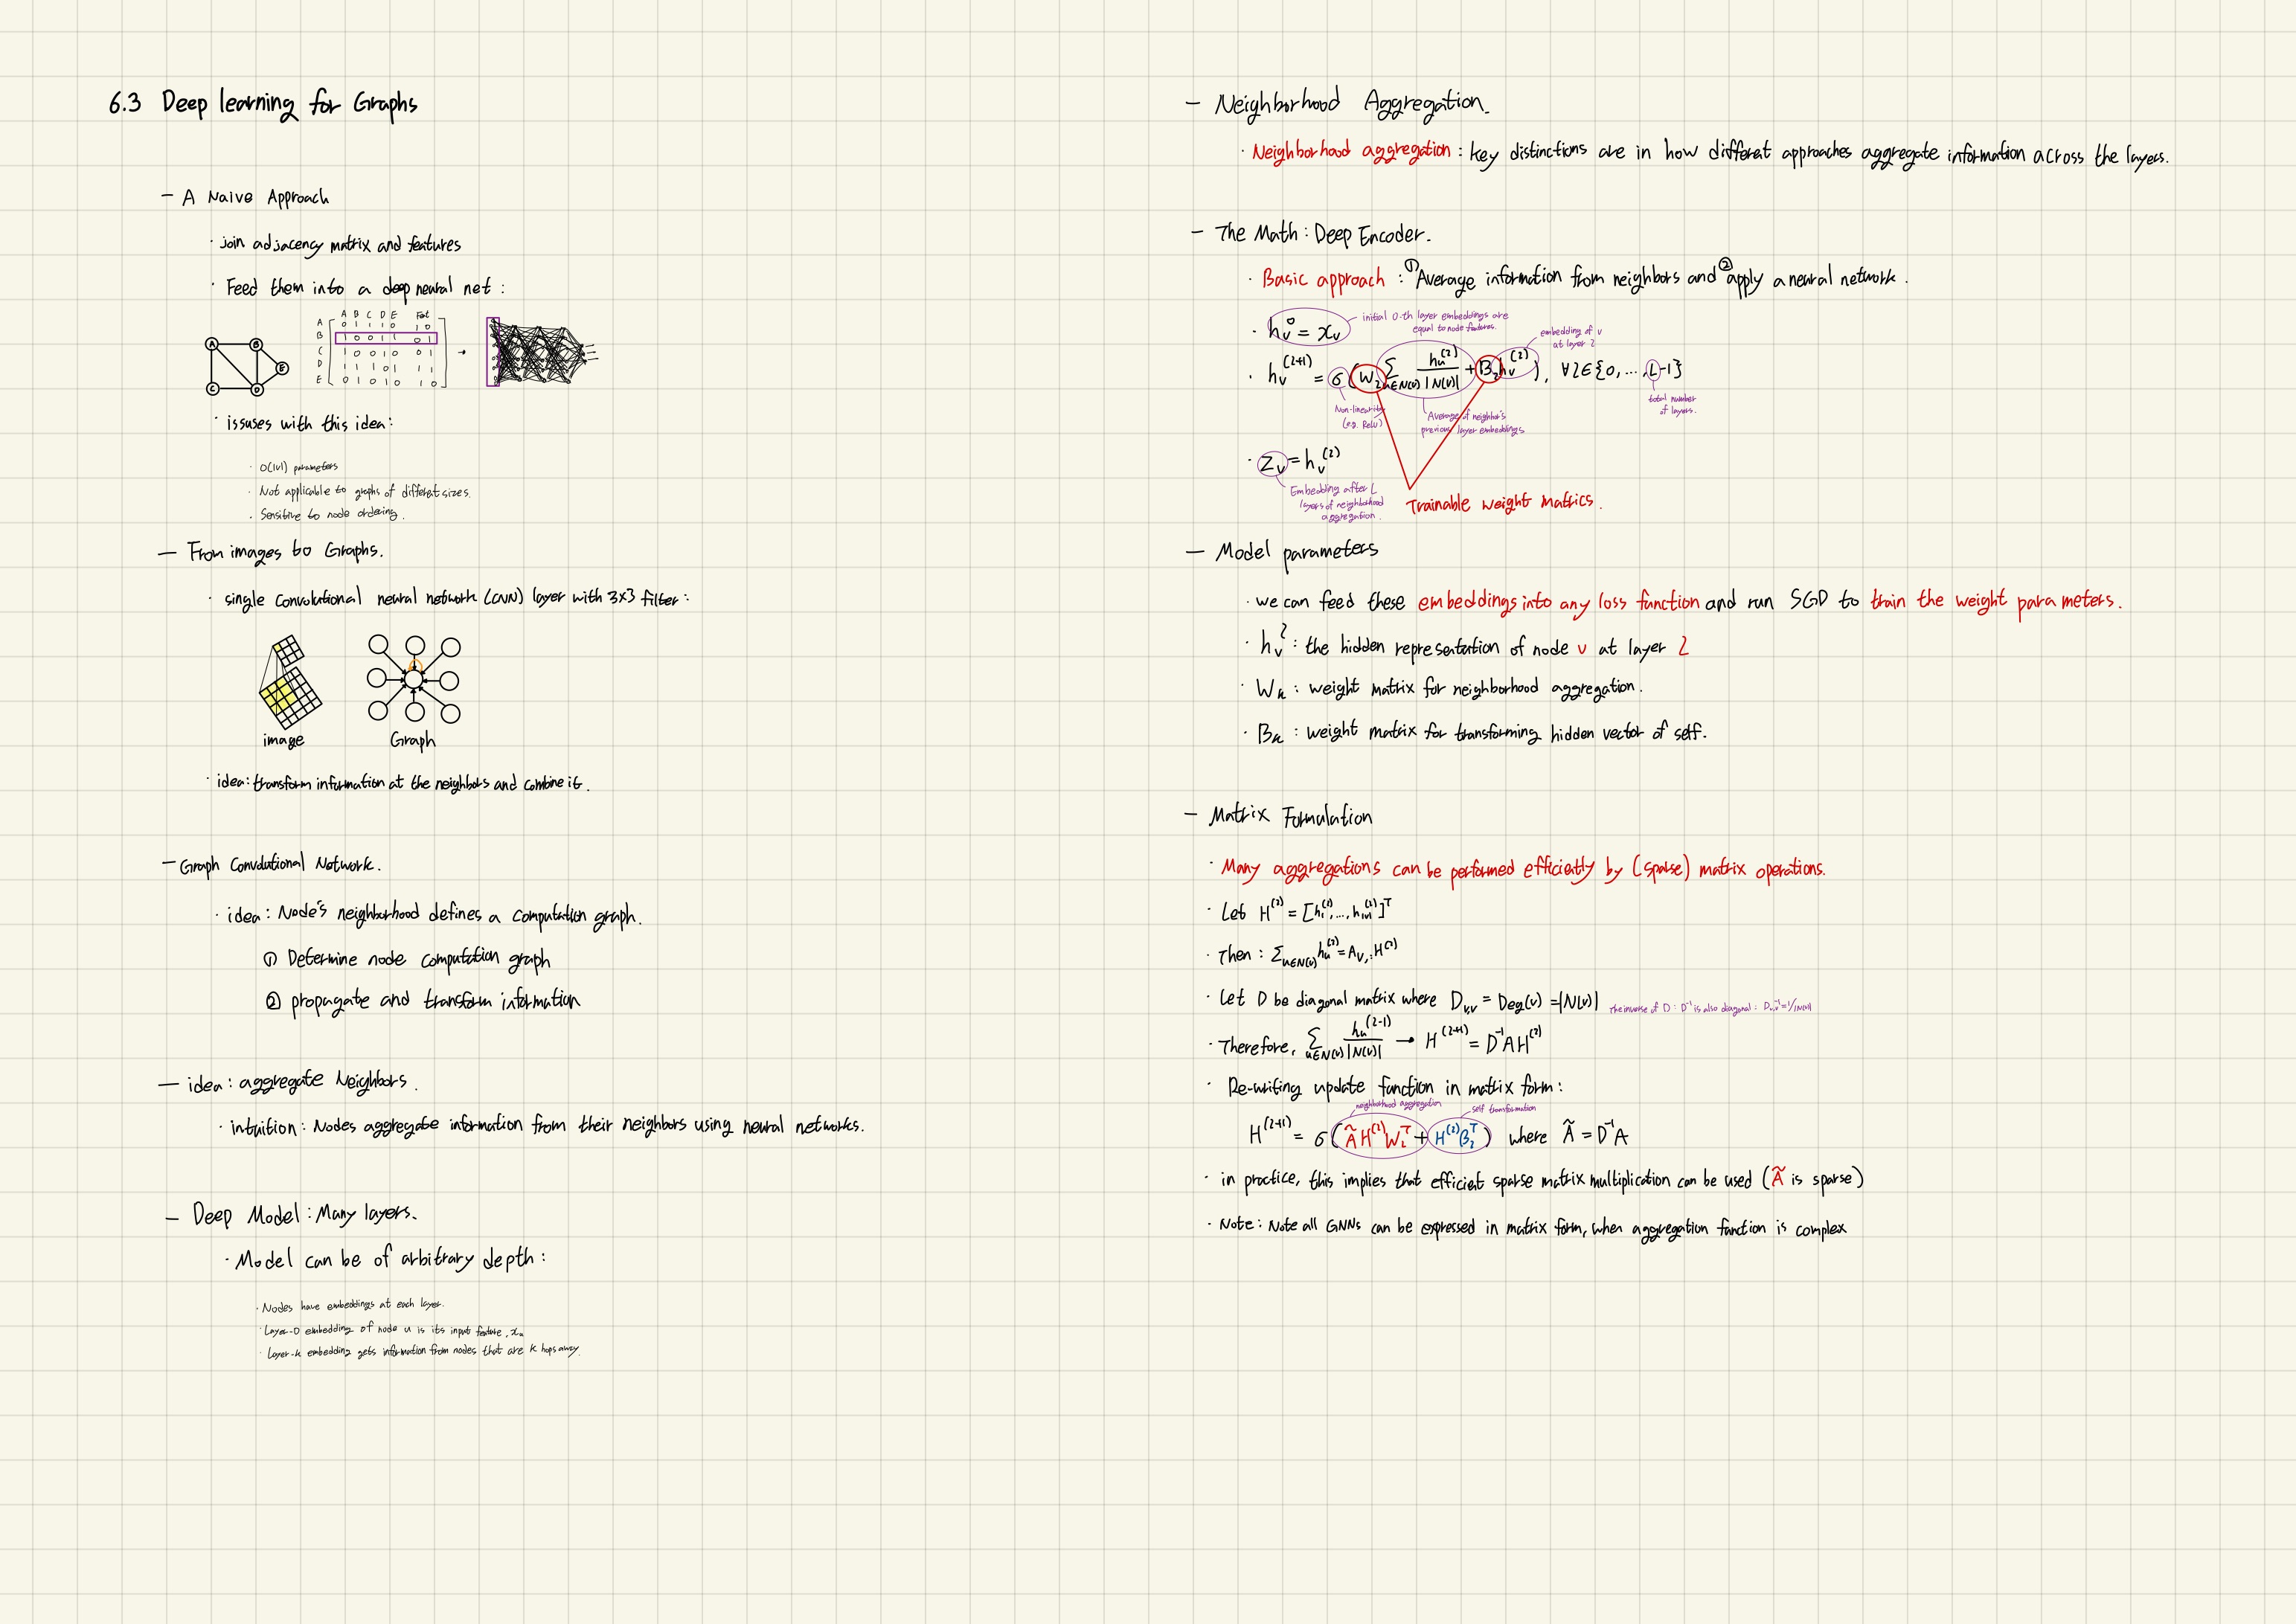 6.3 Deep learning for Graphs
- A Naive Approach
· join adjacency matrix and features
· Feed them into a deep neural net :
A B C D E Feat
A 0 1 1 1 0 1 0
B 1 0 0 1 1 0 1
C 1 0 0 1 0 0 1
D 1 1 1 0 1 1 1
E 0 1 0 1 0 1 0
A B C D E
· issuses with this idea :
· O(|V|) parameters
· Not applicable to graphs of different sizes.
· Sensitive to node ordering.
- From images to Graphs.
· single convolutional neural network (CNN) layer with 3x3 filter :
image Graph
· idea : transform information at the neighbors and combine it.
- Graph Convolutional Network.
· idea : Node's neighborhood defines a computation graph.
① Determine node computation graph
② propagate and transform information
- idea : aggregate Neighbors.
· intuition : Nodes aggregate information from their neighbors using neural networks.
- Deep Model : Many layers.
· Model can be of arbitrary depth :
· Nodes have embeddings at each layer.
· Layer-0 embedding of node u is its input feature, xᵤ
· Layer-k embedding gets information from nodes that are k hops away.
- Neighborhood Aggregation.
· Neighborhood aggregation : key distinctions are in how different approaches aggregate information across the layers.
- The Math : Deep Encoder.
· Basic approach : ① Average information from neighbors and ② apply a neural network.
· h_v^0 = x_v
initial 0-th layer embeddings are
equal to node features.
embedding of v
at layer l
· h_v^(l+1) = σ(W_l Σ_{u∈N(v)} h_u^(l) / |N(v)| + B_l h_v^(l)), ∀l∈{0, ..., L-1}
Non-linearity
(e.g. ReLU)
Average of neighbor's
previous layer embeddings
total number
of layers.
· z_v = h_v^(l)
Embedding after L
layers of neighborhood
aggregation.
Trainable weight matrics.
- Model parameters
· we can feed these embeddings into any loss function and run SGD to train the weight parameters.
· h_v^l : the hidden representation of node v at layer l
· W_k : weight matrix for neighborhood aggregation.
· B_k : weight matrix for transforming hidden vector of self.
- Matrix Formulation
· Many aggregations can be performed efficiently by (sparse) matrix operations.
· Let H^(l) = [h_1^(l), ..., h_|V|^(l)]^T
· Then : Σ_{u∈N(v)} h_u^(l) = A_{v,:} H^(l)
· Let D be diagonal matrix where D_{v,v} = Deg(v) = |N(v)| The inverse of D : D^-1 is also diagonal : D_{v,v}^-1 = 1/|N(v)|
· Therefore, Σ_{u∈N(v)} h_u^(l-1) / |N(v)| → H^(l+1) = D^-1 A H^(l)
· Re-writing update function in matrix form :
neighborhood aggregation self transformation
H^(l+1) = σ(Ã H^(l) W_l^T + H^(l) B_l^T) where Ã = D^-1 A
· in practice, this implies that efficient sparse matrix multiplication can be used (Ã is sparse)
· Note : Note all GNNs can be expressed in matrix form, when aggregation function is complex